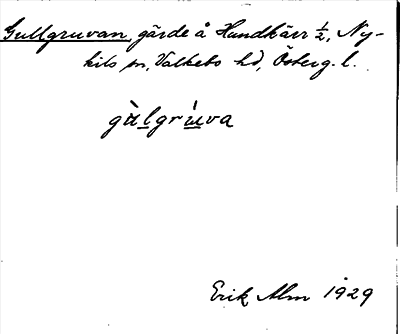 Gullgruvan, gärde å Hundkärr ½, Ny-
kils sn, Valkebo hd, Österg. l.
gùlgrúva
Erik Alm 1929